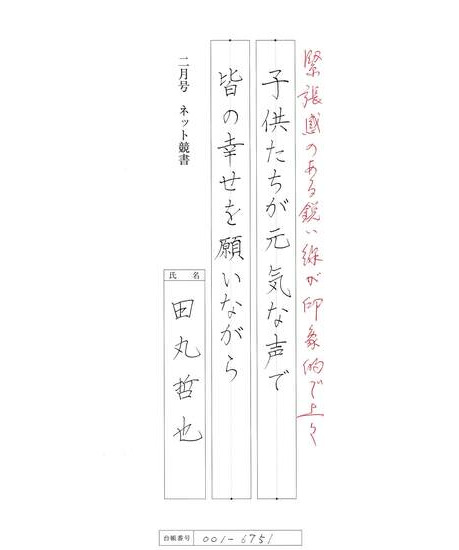 緊張感のある鋭い線が印象的で上々
子供たちが元気な声で
皆の幸せを願いながら
二月号 ネット競書
氏 名
田丸哲也
台帳番号 001-6751